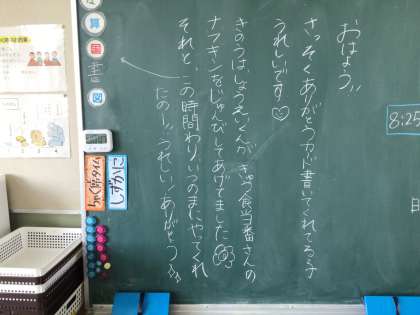 おはよう!!
さっそくありがとうカード書いてくれてる子
うれしいです♡
きのうはしょうえいくんが きゅう食当番さんの
ナフキンをじゅんびしてあげてました
それと、この時間わりいつのまにやってくれ
たのー!!うれしい!ありがとう
算
国
書
図
8:25
しずかに